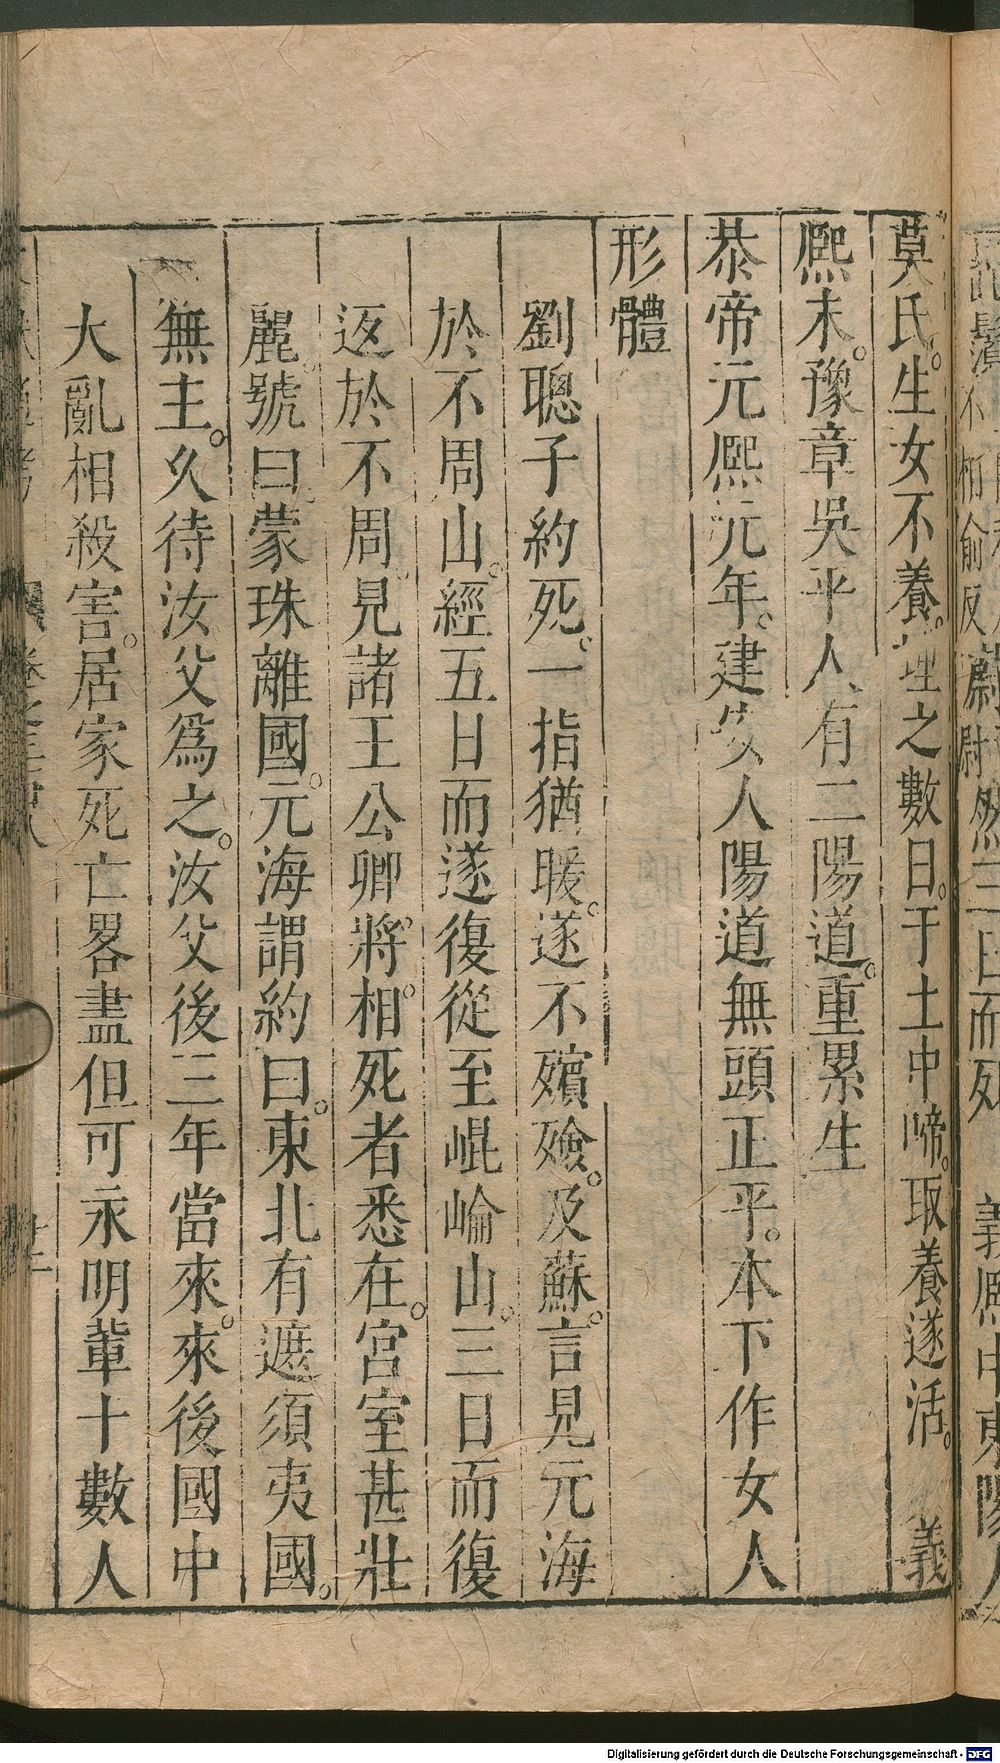 莫氏。生女不養。埋之數日。于土中啼。取養遂活。　義
熈末。豫章吳平人、有二陽道。重累生
恭帝元熈元年。建安人陽道無頭正平。本下作女人
形體
劉聰子約死。一指猶暖。遂不殯殮。及蘇。言見元海
於不周山。經五日而遂復從至崐崘山。三日而復
返於不周。見諸王公卿。將。相。死者悉在。宮室甚壯
麗。號曰蒙珠離國。元海謂約曰。東北有遮須夷國。
無主。久待汝父爲之。汝父後三年當來。來後國中
大亂相殺害。居家死亡畧盡但可永明輩十數人
Digitalisierung gefördert durch die Deutsche Forschungsgemeinschaft - DFG